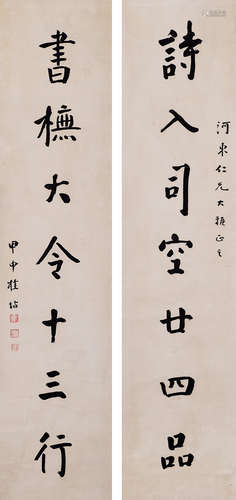 河東仁兄大雅正之
詩入司空廿四品
書橅大令十三行
甲申